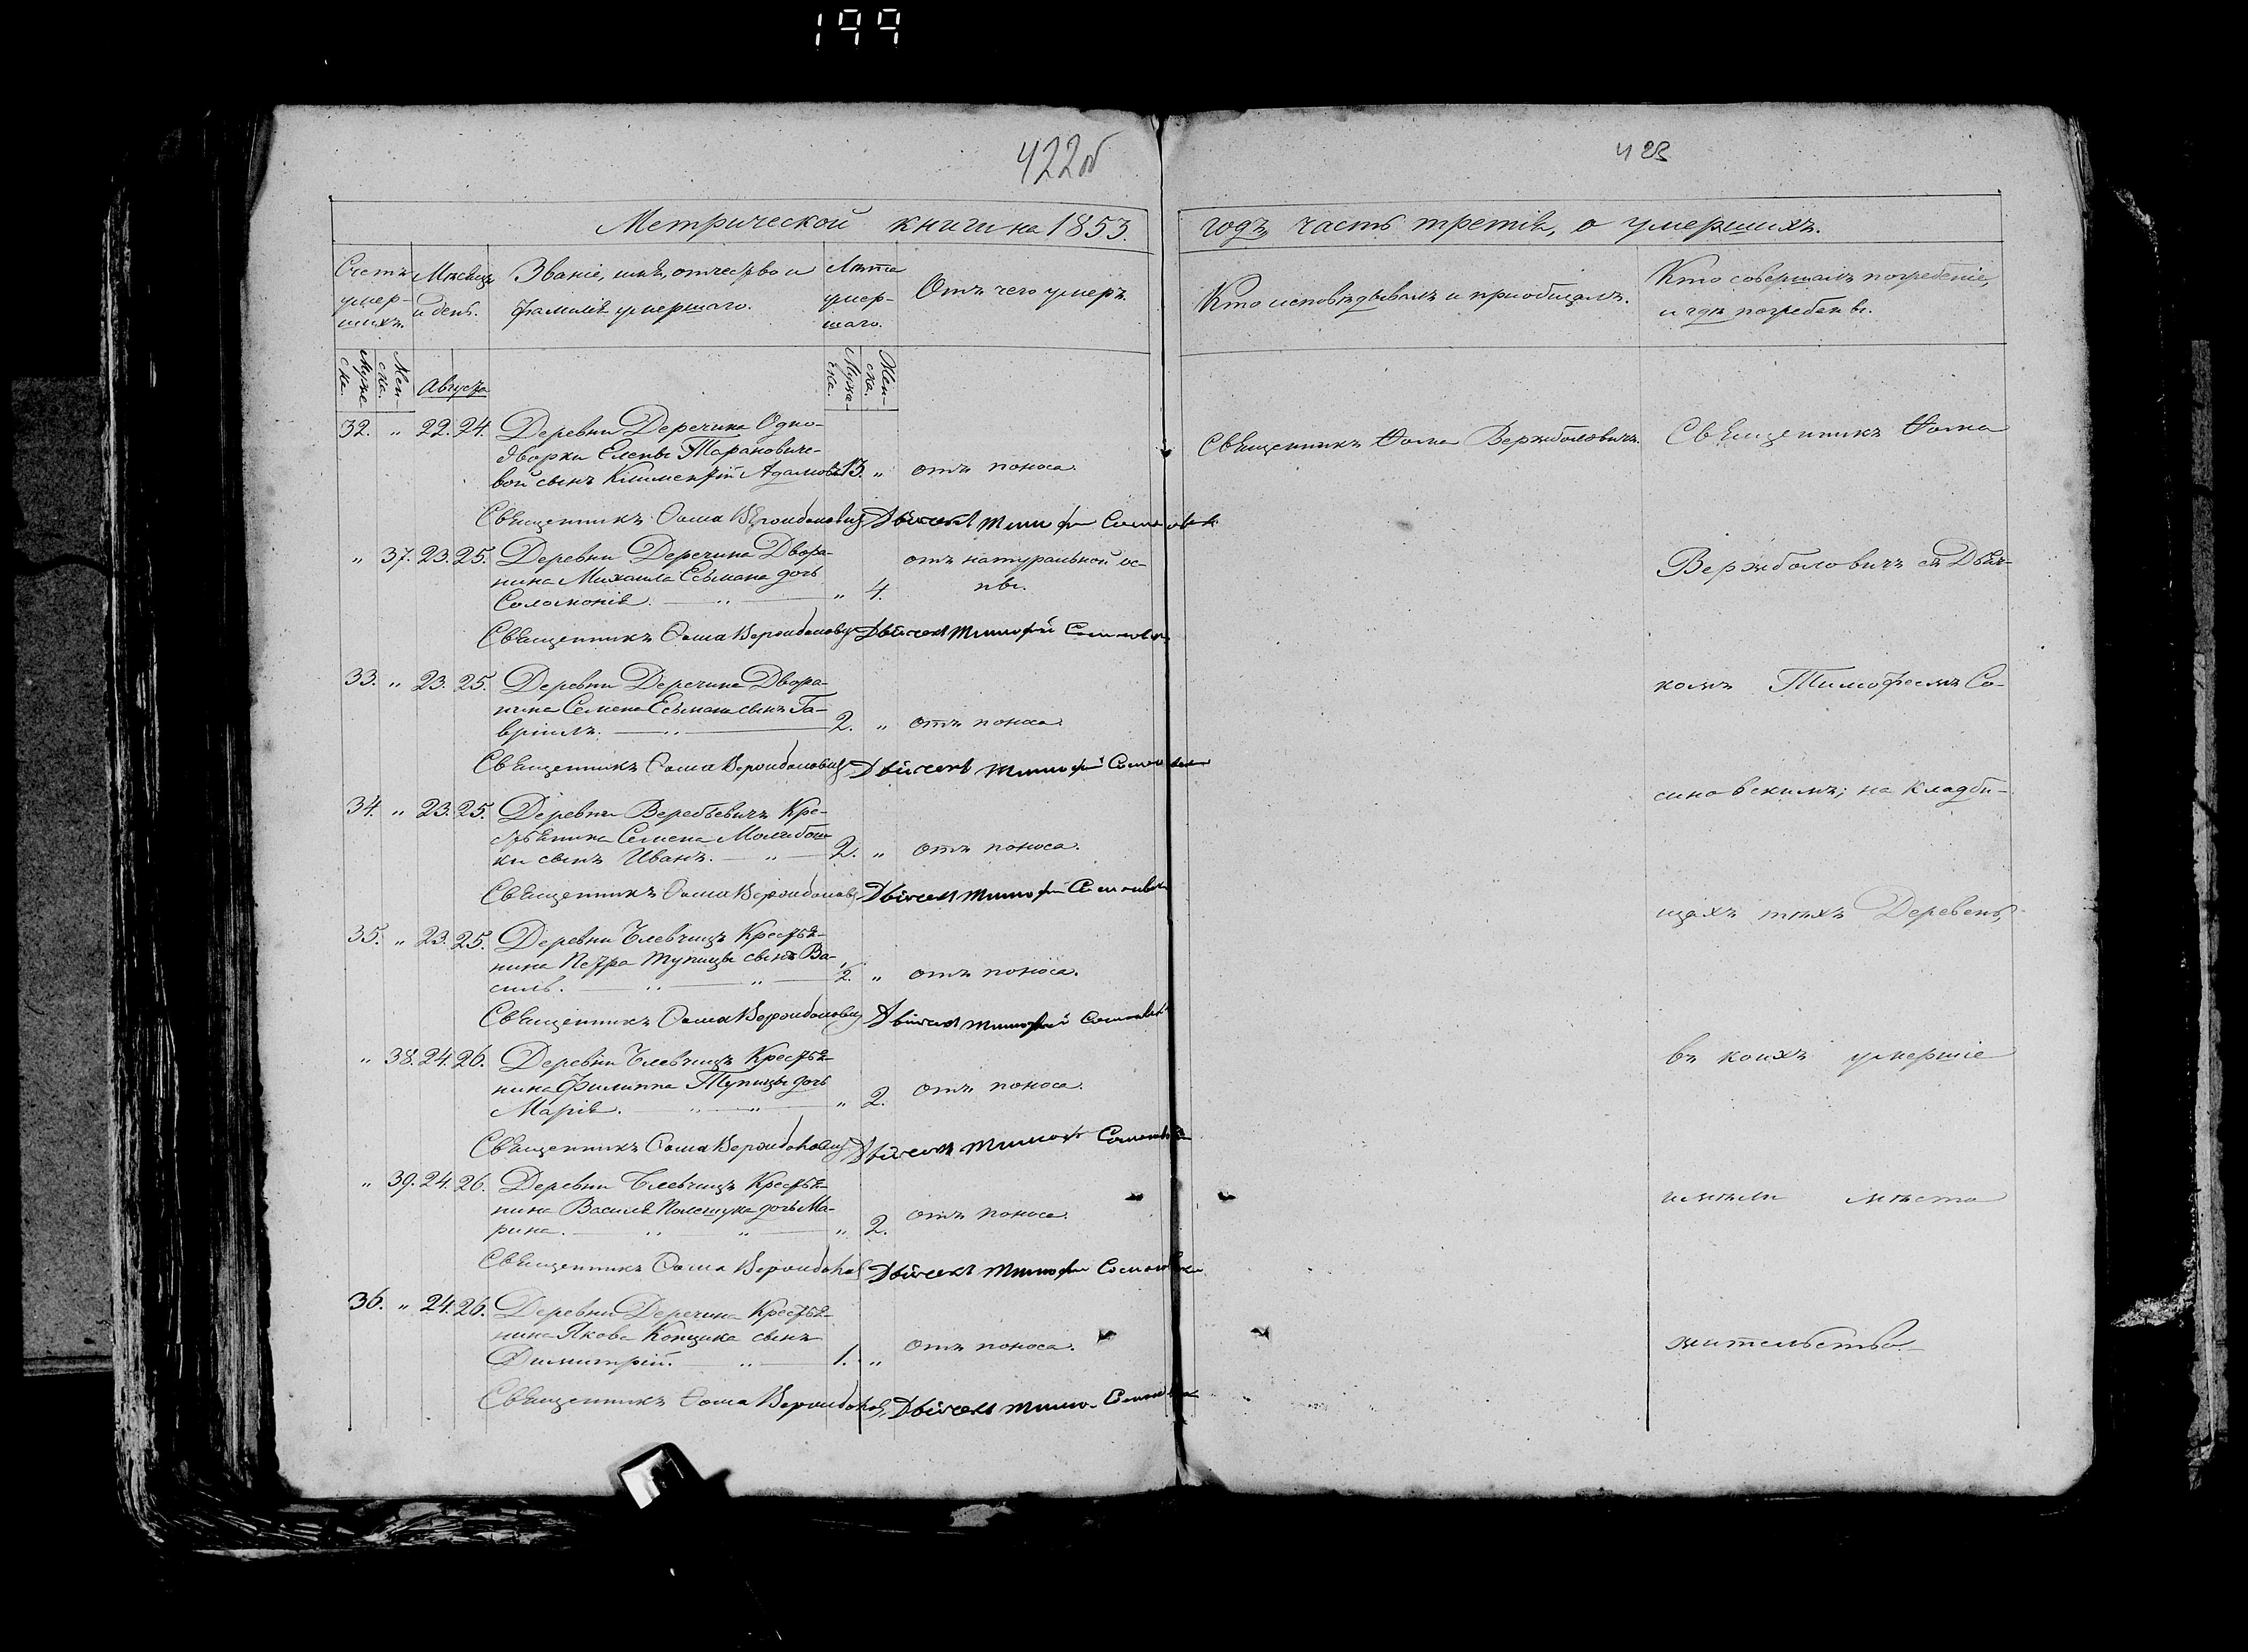 199
422об
423
Метрической книги на 1853.
годъ, часть третія, о умершихъ.
Счетъ умер-
шихъ.
Мѣсяцъ
и день.
Званіе, имя, отчество и
фамилія умершаго.
Лѣта
умер-
шаго.
Отъ чего умеръ.
Кто исповѣдывалъ и пріобщалъ.
Кто совершалъ погребеніе,
и гдѣ погребены.
Муже-
ска.
Жен-
ска.
Августа
Муже-
ска.
Жен-
ска.
32. „ 22. 24. Деревни Деречина Одно-
дворки Елены Таранович-
вой сынъ Климентій Адамовъ 13. „ отъ поноса.
Священникъ Ѳома Вержболовичъ.
Священникъ Ѳома
Священникъ Ѳома Вержболовичъ Дьячекъ Тимофей Сосиновскій
„ 37. 23. 25. Деревни Деречина Дворя-
нина Михаила Есьмана дочь
Соломонія. „ „ 4. отъ натуральной ос-
пы.
Вержболовичъ съ Дьяч-
Священникъ Ѳома Вержболовичъ Дьячекъ Тимофей Сосиновскій
33. „ 23. 25. Деревни Деречина Дворя-
нина Семена Есьмана сынъ Га-
вріилъ. „ 2. „ отъ поноса.
комъ Тимофеемъ Со-
Священникъ Ѳома Вержболовичъ Дьячекъ Тимофей Сосиновскій
синовскимъ; на кладби-
34. „ 23. 25. Деревни Веребьевичъ Кре-
стьянина Семена
ки сынъ Иванъ. „ 2. „ отъ поноса.
Священникъ Ѳома Вержболовичъ Дьячекъ Тимофей Сосиновскій
щахъ тѣхъ Деревень,
35. „ 23. 25. Деревни Крестья-
нина Петра Тупицы сынъ Ва-
силь. „ „ 2. „ отъ поноса.
Священникъ Ѳома Вержболовичъ Дьячекъ Тимофей Сосиновскій
„ 38. 24. 26. Деревни Крестья-
нина Филиппа Тупицы дочь
Марія. „ „ „ 2. отъ поноса.
въ коихъ умершіе
Священникъ Ѳома Вержболовичъ Дьячекъ Тимофей Сосиновскій
„ 39. 24. 26. Деревни Крестья-
нина Василя Полещука дочь Ма-
рина. „ „ „ 2. отъ поноса.
имѣли мѣсто
Священникъ Ѳома Вержболовичъ Дьячекъ Тимофей Сосиновскій
36. „ 24. 26. Деревни Деречина Крестья-
нина Якова Копцика сынъ
Димитрій. „ 1. „ отъ поноса.
жительство.
Священникъ Ѳома Вержболовичъ Дьячекъ Тимофей Сосиновскій